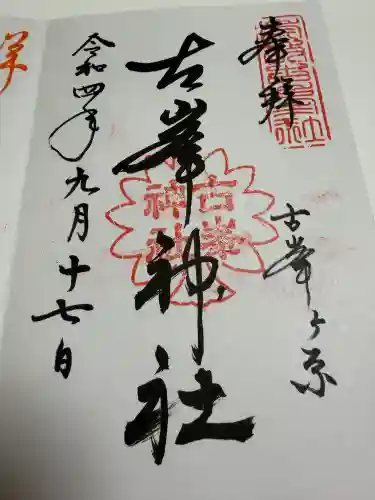 奉拝
古峯ヶ原
古峯神社
令和四年九月十七日
古峯
神社